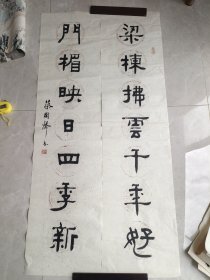 梁棟拂雲千年好
門楣映日四季新